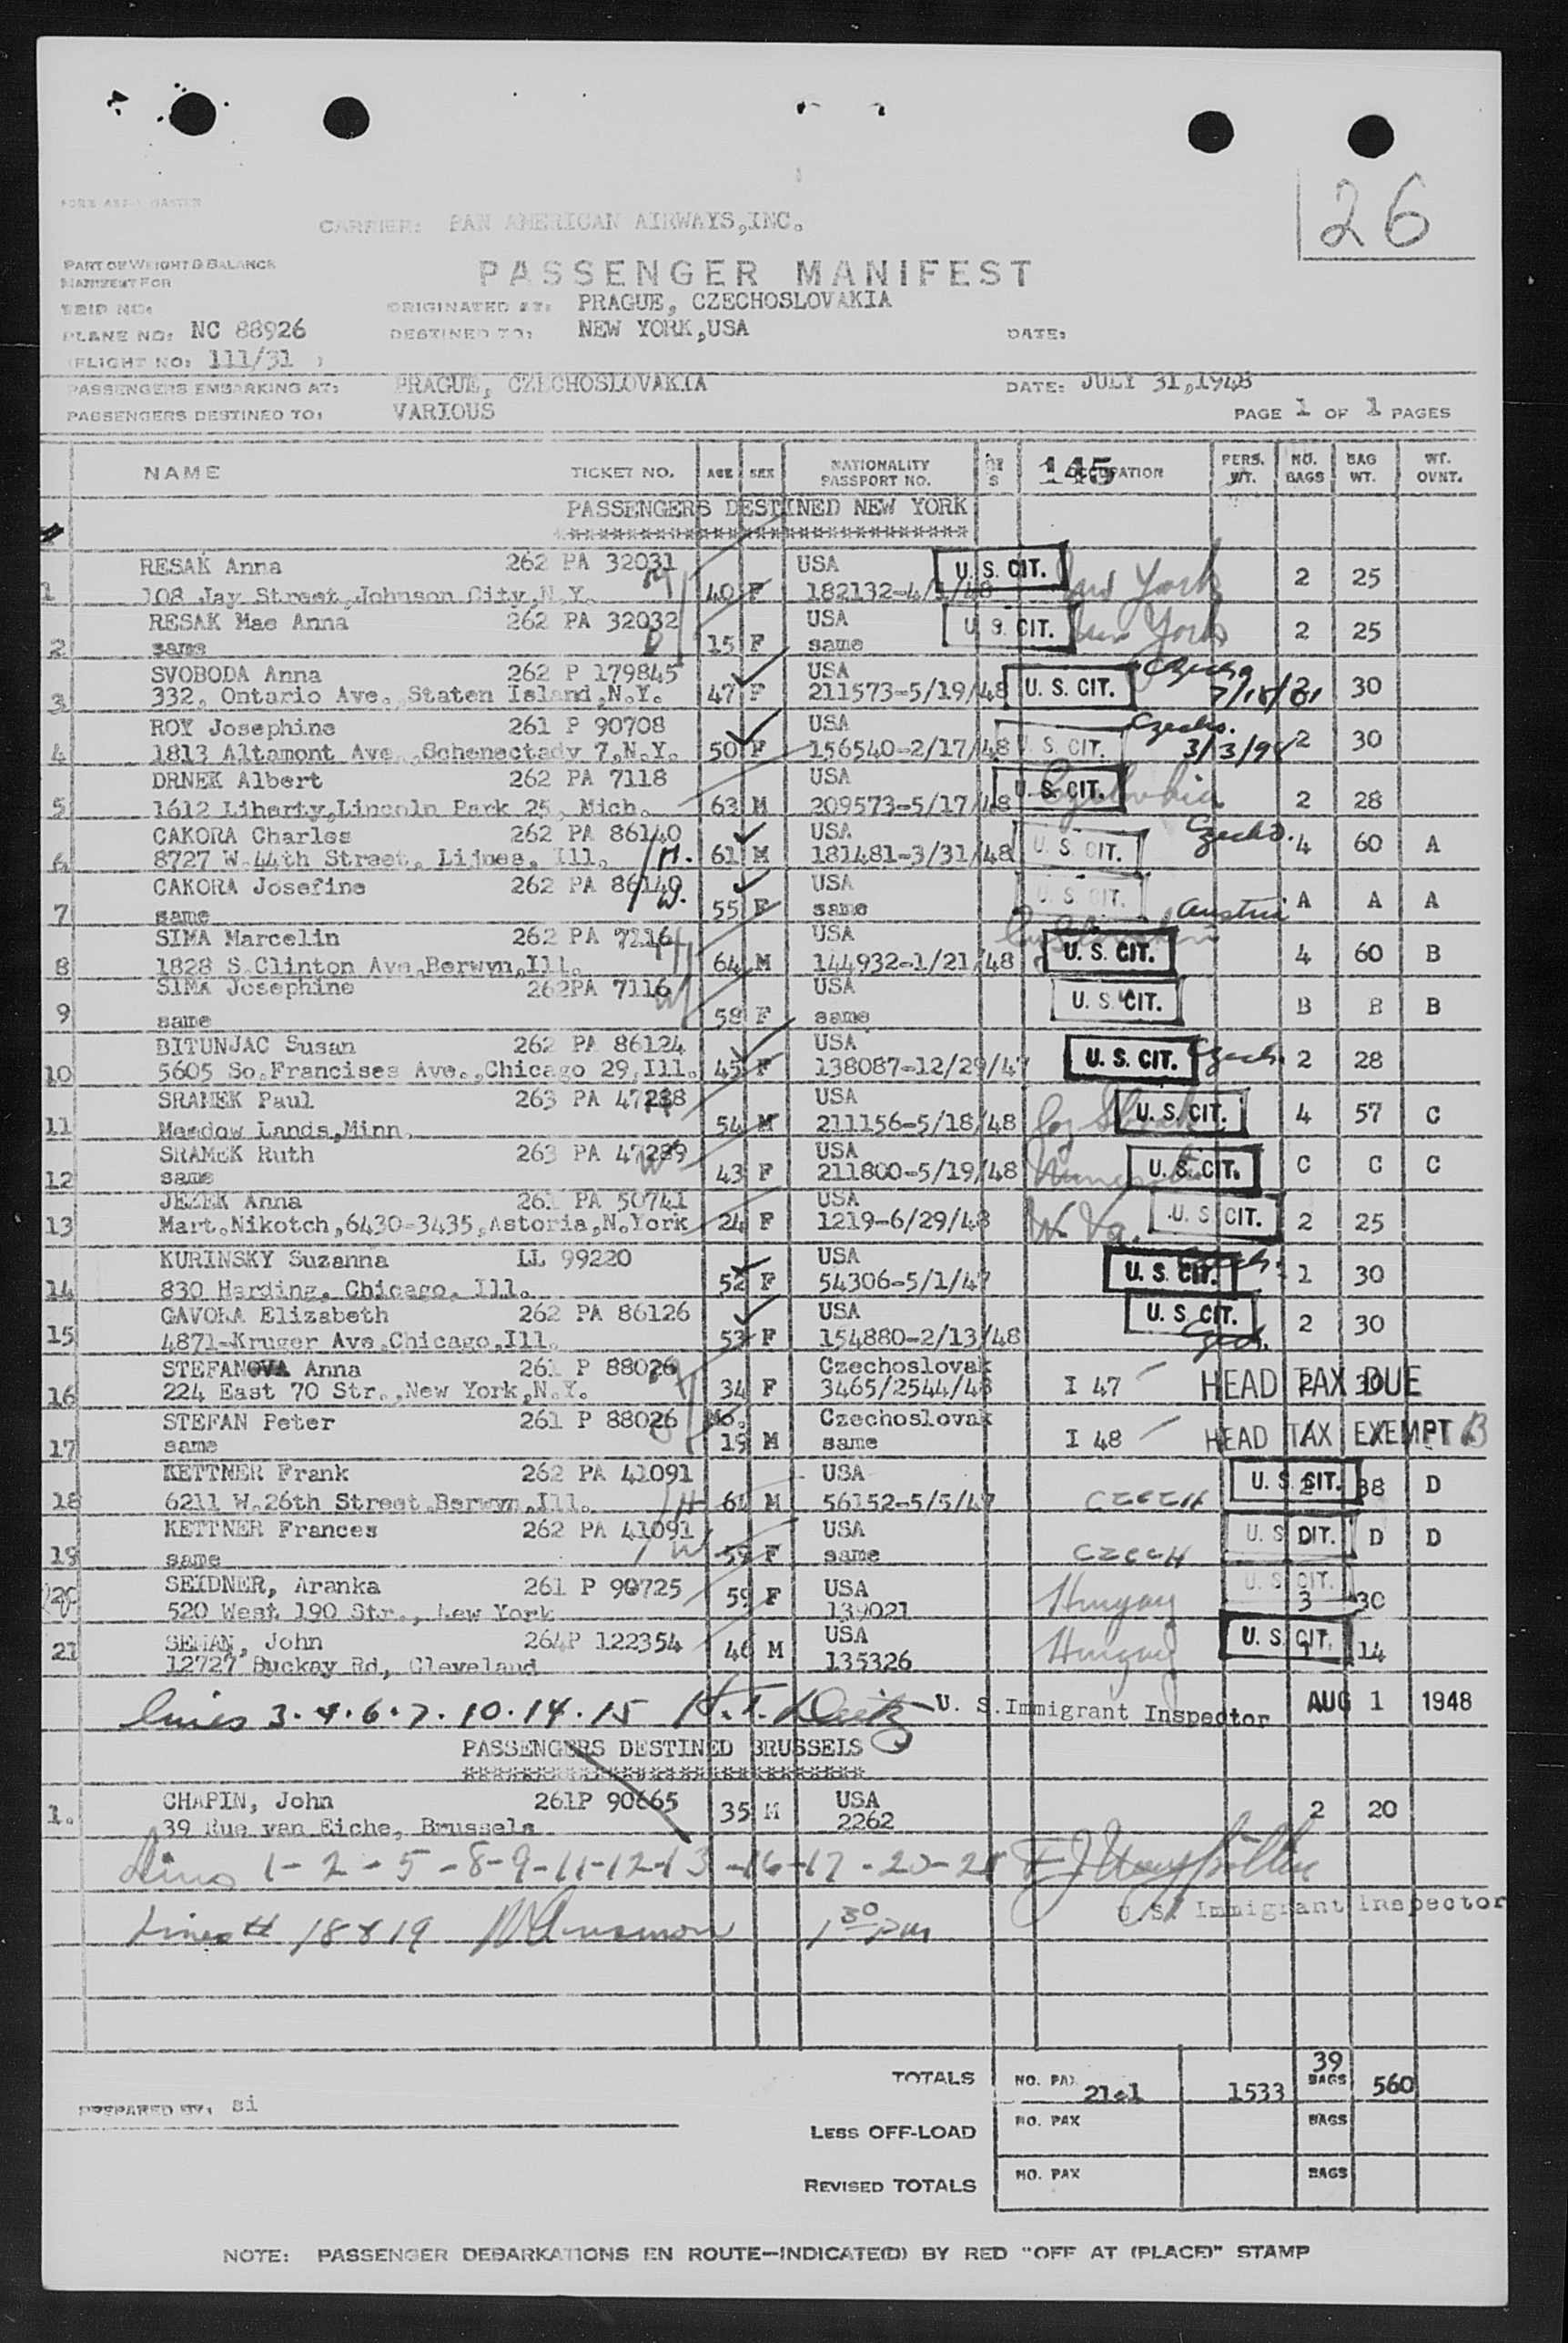 26
CARRIER: PAN AMERICAN AIRWAYS,INC.
PART OF WEIGHT & BALANCE
MANIFEST FOR
PASSENGER MANIFEST
TRIP NO:
ORIGINATED AT: PRAGUE, CZECHOSLOVAKIA
PLANE NO: NC 88926 DESTINED TO: NEW YORK,USA DATE:
(FLIGHT NO: 111/31 )
PASSENGERS EMBARKING AT: PRAGUE, CZECHOSLOVAKIA DATE: JULY 31,1948
PASSENGERS DESTINED TO: VARIOUS PAGE 1 OF 1 PAGES
NAME TICKET NO. AGE SEX NATIONALITY PASSPORT NO. 145 OCCUPATION PERS. WT. NO. BAGS BAG WT. WT. OVNT.
PASSENGERS DESTINED NEW YORK
RESAK Anna 262 PA 32031 USA U. S. CIT. New York 2 25
1 108 Jay Street,Johnson City,N.Y. 40 F 182132-4/1/48
RESAK Mae Anna 262 PA 32032 USA U. S. CIT. New York 2 25
2 same 15 F same
SVOBODA Anna 262 P 179845 USA Czecho
3 332. Ontario Ave. Staten Island,N.Y. 47 F 211573-5/19/48 U. S. CIT. 30
ROY Josephine 261 P 90708 USA Czecho.
4 1813 Altamont Ave.,Schenectady 7,N.Y. 50 F 156540-2/17/48 U. S. CIT. 2 30
DRNEK Albert 262 PA 7118 USA
5 1612 Liberty,Lincoln Park 25, Mich. 63 M 209573-5/17/48 U. S. CIT. 2 28
CAKORA Charles 262 PA 86140 USA Czecho.
6 8727 W.44th Street, Lijnes, Ill. H. 61 M 181481-3/31/48 U. S. CIT. 4 60 A
CAKORA Josefine 262 PA 86140 USA
7 same W. 55 F same U. S. CIT. Austria A A A
SIMA Marcelin 262 PA 7116 USA
8 1828 S.Clinton Ave,Berwyn,Ill. 64 M 144932-1/21/48 U. S. CIT. 4 60 B
SIMA Josephine 262PA 7116 USA
9 same 58 F same U. S. CIT. B B B
BITUNJAC Susan 262 PA 86124 USA
10 5605 So.Francises Ave.,Chicago 29,Ill. 45 F 138087-12/29/47 U. S. CIT. Czech. 2 28
SRAMEK Paul 263 PA 47288 USA
11 Meadow Lands,Minn. 54 M 211156-5/18/48 U. S. CIT. 4 57 C
SRAMEK Ruth 263 PA 47289 USA
12 same 43 F 211800-5/19/48 U. S. CIT. C C C
JEZEK Anna 261 PA 50741 USA
13 Mart.Nikotch,6430-3435,Astoria,N.York 24 F 1219-6/29/48 W. Va. U. S. CIT. 2 25
KURINSKY Suzanna LL 99220 USA Czech.
14 830 Harding, Chicago, Ill. 52 F 54306-5/1/47 U. S. CIT. 1 30
GAVORA Elizabeth 262 PA 86126 USA U. S. CIT.
15 4871-Kruger Ave,Chicago,Ill. 53 F 154880-2/13/48 Czech. 2 30
STEFANOVA Anna 261 P 88026 Czechoslovak
16 224 East 70 Str.,New York,N.Y. 34 F 3465/2544/48 I 47 HEAD TAX DUE
STEFAN Peter 261 P 88026 Mo. Czechoslovak
17 same 19 M same I 48 HEAD TAX EXEMPT
KETTNER Frank 262 PA 41091 USA U. S. CIT. 38 D
18 6211 W.26th Street,Berwyn,Ill. H 61 M 56152-5/5/47 CZECH
KETTNER Frances 262 PA 41091 USA U. S. CIT. D D D
19 same W 59 F same CZECH
20 SEIDNER, Aranka 261 P 90725 59 F USA Hungary U. S. CIT. 3 30
520 West 190 Str., New York 139021
21 SEMAN, John 264P 122354 46 M USA Hungary U. S. CIT. 1 14
12727 Buckey Rd, Cleveland 135326
lines 3.4.6.7.10.14.15 U. S. Immigrant Inspector AUG 1 1948
PASSENGERS DESTINED BRUSSELS
1. CHAPIN, John 261P 90665 35 M USA 2 20
39 Rue van Eiche, Brussels 2262
Lines 1-2-5-8-9-11-12-13-16-17-20-21
U.S. Immigrant Inspector
Lines # 18 & 19 1 30 PM
39
TOTALS NO. PAX 21+1 1533 BAGS 560
PREPARED BY: si
LESS OFF-LOAD NO. PAX BAGS
REVISED TOTALS NO. PAX BAGS
NOTE: PASSENGER DEBARKATIONS EN ROUTE—INDICATE(D) BY RED "OFF AT (PLACE)" STAMP